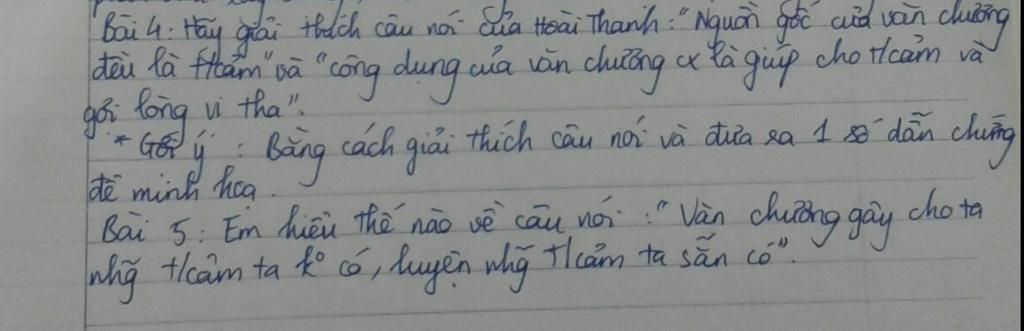 Bài 4: Hãy giải thích câu nói của Hoài Thanh: "Nguồn gốc của văn chương
đều là t/cảm" và "công dụng của văn chương cx là giúp cho t/cảm và
gợi lòng vị tha".
* Gợi ý : Bằng cách giải thích câu nói và đưa ra 1 số dẫn chứng
để minh họa.
Bài 5: Em hiểu thế nào về câu nói: "Văn chương gây cho ta
nhg̃ t/cảm ta kº có, luyện nhg̃ t/cảm ta sẵn có".